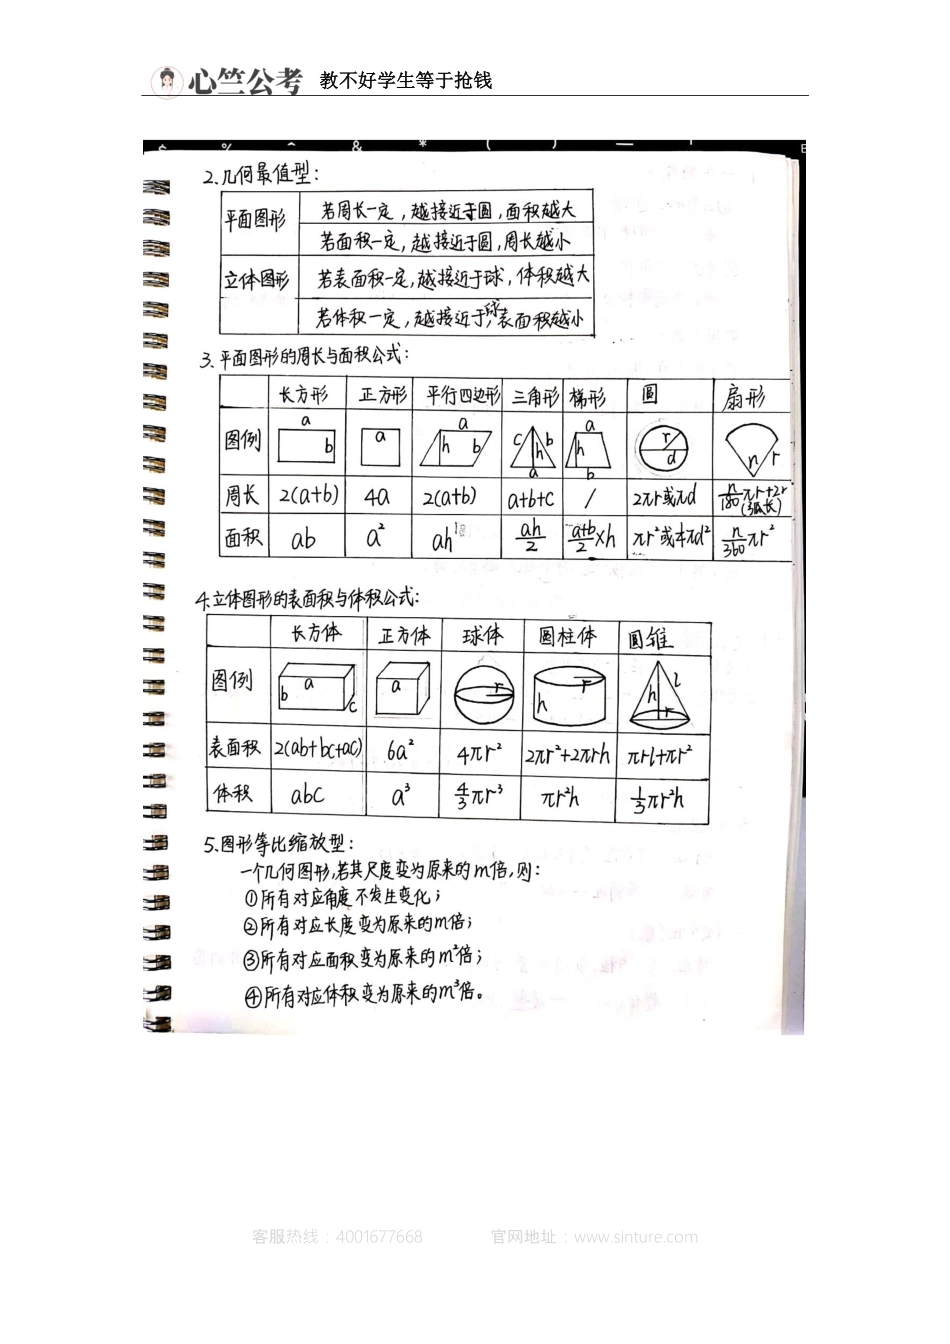 心竺公考 教不好学生等于抢钱
2.几何最值型：
平面图形 若周长一定，越接近于圆，面积越大
若面积一定，越接近于圆，周长越小
立体图形 若表面积一定，越接近于球，体积越大
若体积一定，越接近于球，表面积越小
3.平面图形的周长与面积公式：
长方形 正方形 平行四边形 三角形 梯形 圆 扇形
图例 a b a a h b c h b a a h b r d n r
周长 2(a+b) 4a 2(a+b) a+b+c / 2πr或πd n/180 πr+2r
(弧长)
面积 ab a² ah ah/2 a+b/2 ×h πr²或¼πd² n/360 πr²
4.立体图形的表面积与体积公式：
长方体 正方体 球体 圆柱体 圆锥
图例 a b c a r r h h l r
表面积 2(ab+bc+ac) 6a² 4πr² 2πr²+2πrh πrl+πr²
体积 abc a³ 4/3 πr³ πr²h 1/3 πr²h
5.图形等比缩放型：
一个几何图形，若其尺度变为原来的m倍，则：
①所有对应角度不发生变化；
②所有对应长度变为原来的m倍；
③所有对应面积变为原来的m²倍；
④所有对应体积变为原来的m³倍。
客服热线：4001677668 官网地址：www.sinture.com